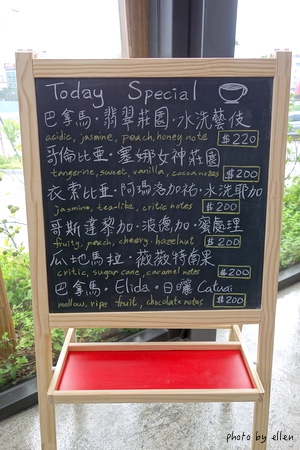 Today Special
巴拿馬·翡翠莊園·水洗藝伎
acidic, jasmine, peach, honey note $220
哥倫比亞·塞娜女神莊園
tangerine, sweet, vanilla, cocoa notes $200
衣索比亞·阿瑪洛加祐·水洗耶加
jasmine, tea-like, critic notes $200
哥斯達黎加·波德加·蜜處理
fruity, peach, cheery, hazelnut $200
瓜地馬拉·薇薇特南果
critic, sugar cane, caramel notes $200
巴拿馬·Elida·日曬 Catuai
mellow, ripe fruit, chocolate notes $200
photo by ellen